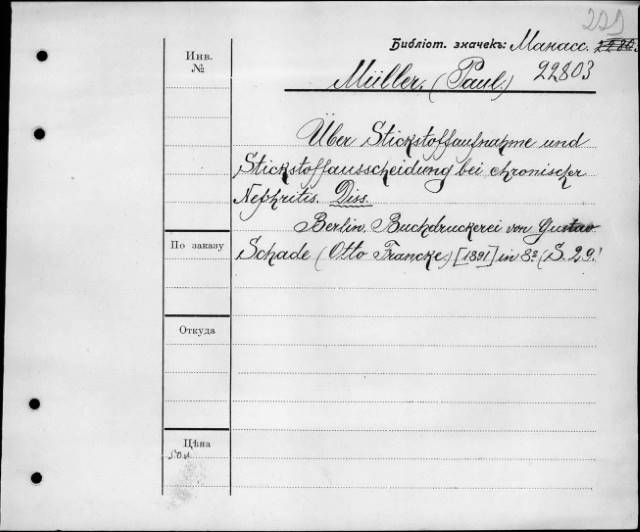 229
Библіот. значекъ: Манасс.
Инв.
№
Müller, (Paul.) 22803
Über Stickstoffaufnahme und
Stickstoffausscheidung bei chronischer
Nephritis. Diss.
Berlin, Buchdruckerei von Gustav
По заказу
Schade (Otto Francke) [1891] in 8º (S. 29.)
Откуда
Цѣна